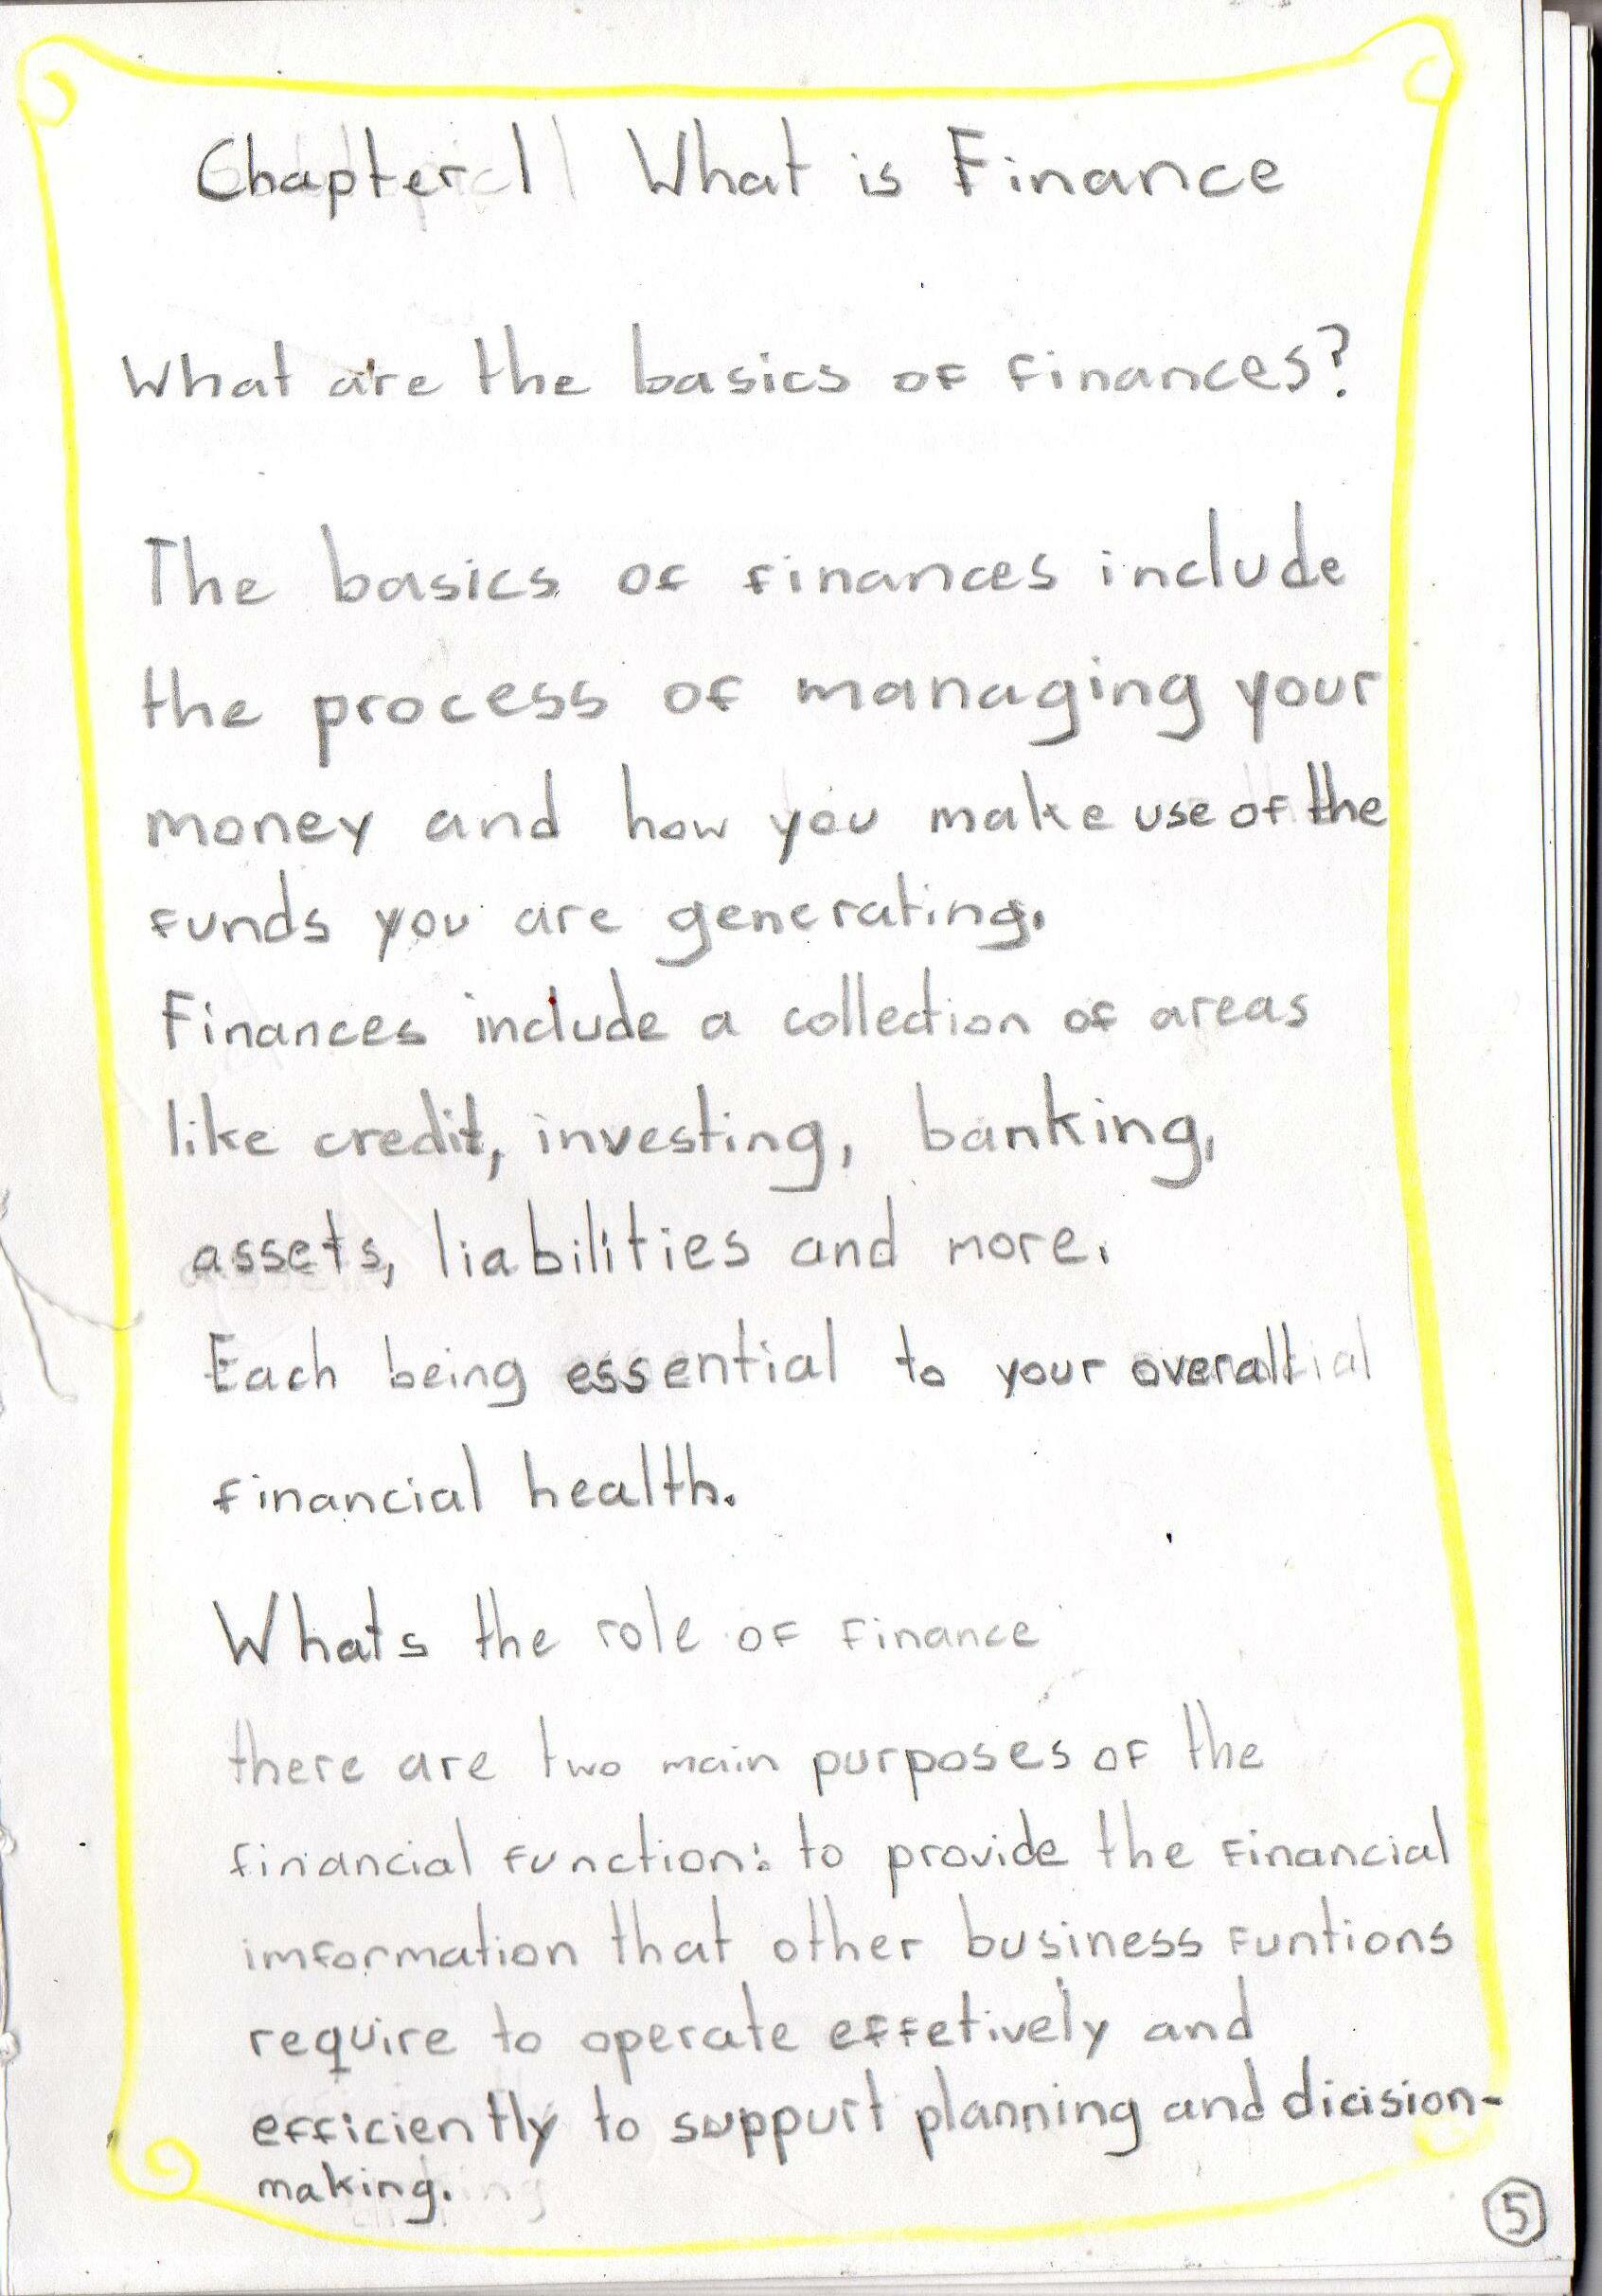 Chapter 1 What is Finance
What are the basics of finances?
The basics of finances include
the process of managing your
money and how you make use of the
funds you are generating.
Finances include a collection of areas
like credit, investing, banking,
assets, liabilities and more.
Each being essential to your overall
financial health.
Whats the role of finance
there are two main purposes of the
financial function: to provide the financial
imformation that other business funtions
require to operate effetively and
efficiently to suppurt planning and dicision-
making.
5